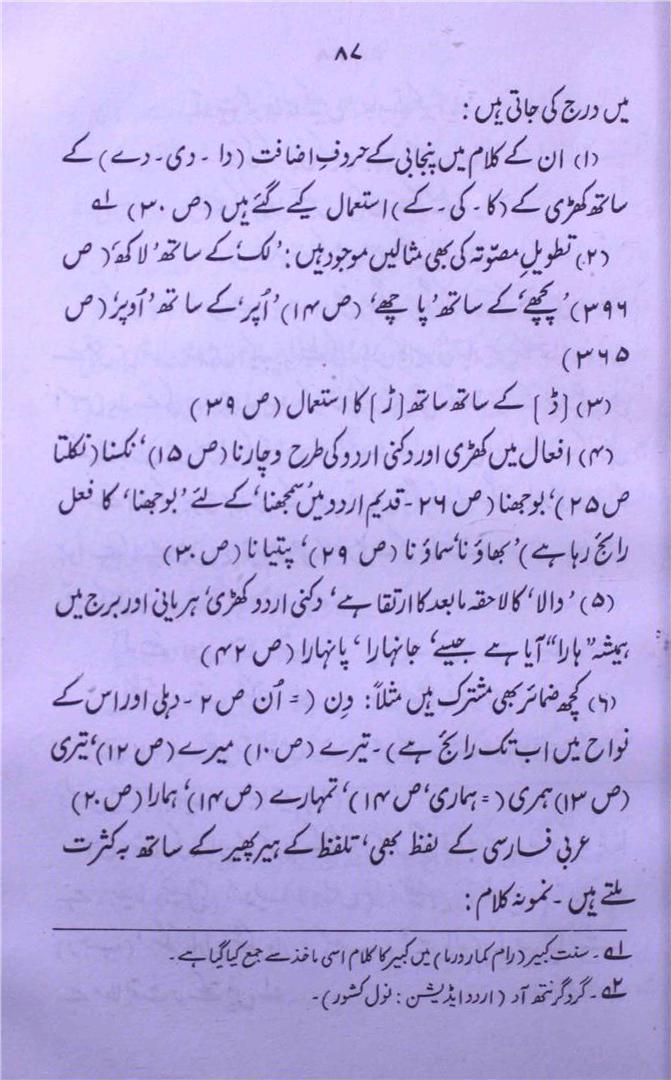 ۸۷
میں درج کی جاتی ہیں :
(۱) ان کے کلام میں پنجابی کے حروفِ اضافت (دا ۔ دی ۔ دے) کے
ساتھ کھڑی کے (کا ۔ کی ۔ کے) استعمال کیے گئے ہیں (ص ۳۰) ؎۱
(۲) تطویلِ مصوّتہ کی بھی مثالیں موجود ہیں : ’لک‘ کے ساتھ ’لاکھ‘ (ص
۳۹۶) ’پچھے‘ کے ساتھ ’پاچھے‘ (ص ۱۴) ’اُپر‘ کے ساتھ ’اُوپر‘ (ص
۳۶۵)
(۳) [ڈ] کے ساتھ ساتھ [ڑ] کا استعمال (ص ۳۹)
(۴) افعال میں کھڑی اور دکنی اردو کی طرح وچارنا (ص ۱۵)‘ نکسنا (نکلتا
ص ۲۵)‘ بوجھنا (ص ۲۶ ۔ قدیم اردو میں ’سمجھنا‘ کے لئے ’بوجھنا‘ کا فعل
رائج رہا ہے) ’بھاؤنا‘ سماؤنا (ص ۲۹)‘ پتیانا (ص ۳۰)
(۵) ’والا‘ کا لاحقہ مابعد کا ارتقا ہے‘ دکنی اردو کھڑی‘ ہریانی اور برج میں
ہمیشہ ”ہارا“ آیا ہے جیسے‘ جانہارا ‘ پانہارا (ص ۴۲)
(۶) کچھ ضمائر بھی مشترک ہیں مثلاً : دِن (= اُن ص ۲ ۔ دہلی اور اس کے
نواح میں اب تک رائج ہے) ۔ تیرے (ص ۱۰) میرے (ص ۱۲)‘ تیری
(ص ۱۳) ہمری (= ہماری‘ ص ۱۴)‘ تمہارے (ص ۱۴)‘ ہمارا (ص ۲۰)
عربی فارسی کے لفظ بھی‘ تلفظ کے ہیر پھیر کے ساتھ بہ کثرت
ملتے ہیں ۔ نمونہ کلام :
؎۱ ۔ سنت کبیر (رام کمار درما) میں کبیر کا کلام اسی ماخذ سے جمع کیا گیا ہے ۔
؎۲ ۔ گرد گرنتھ آد (اردو ایڈیشن : نول کشور) ۔